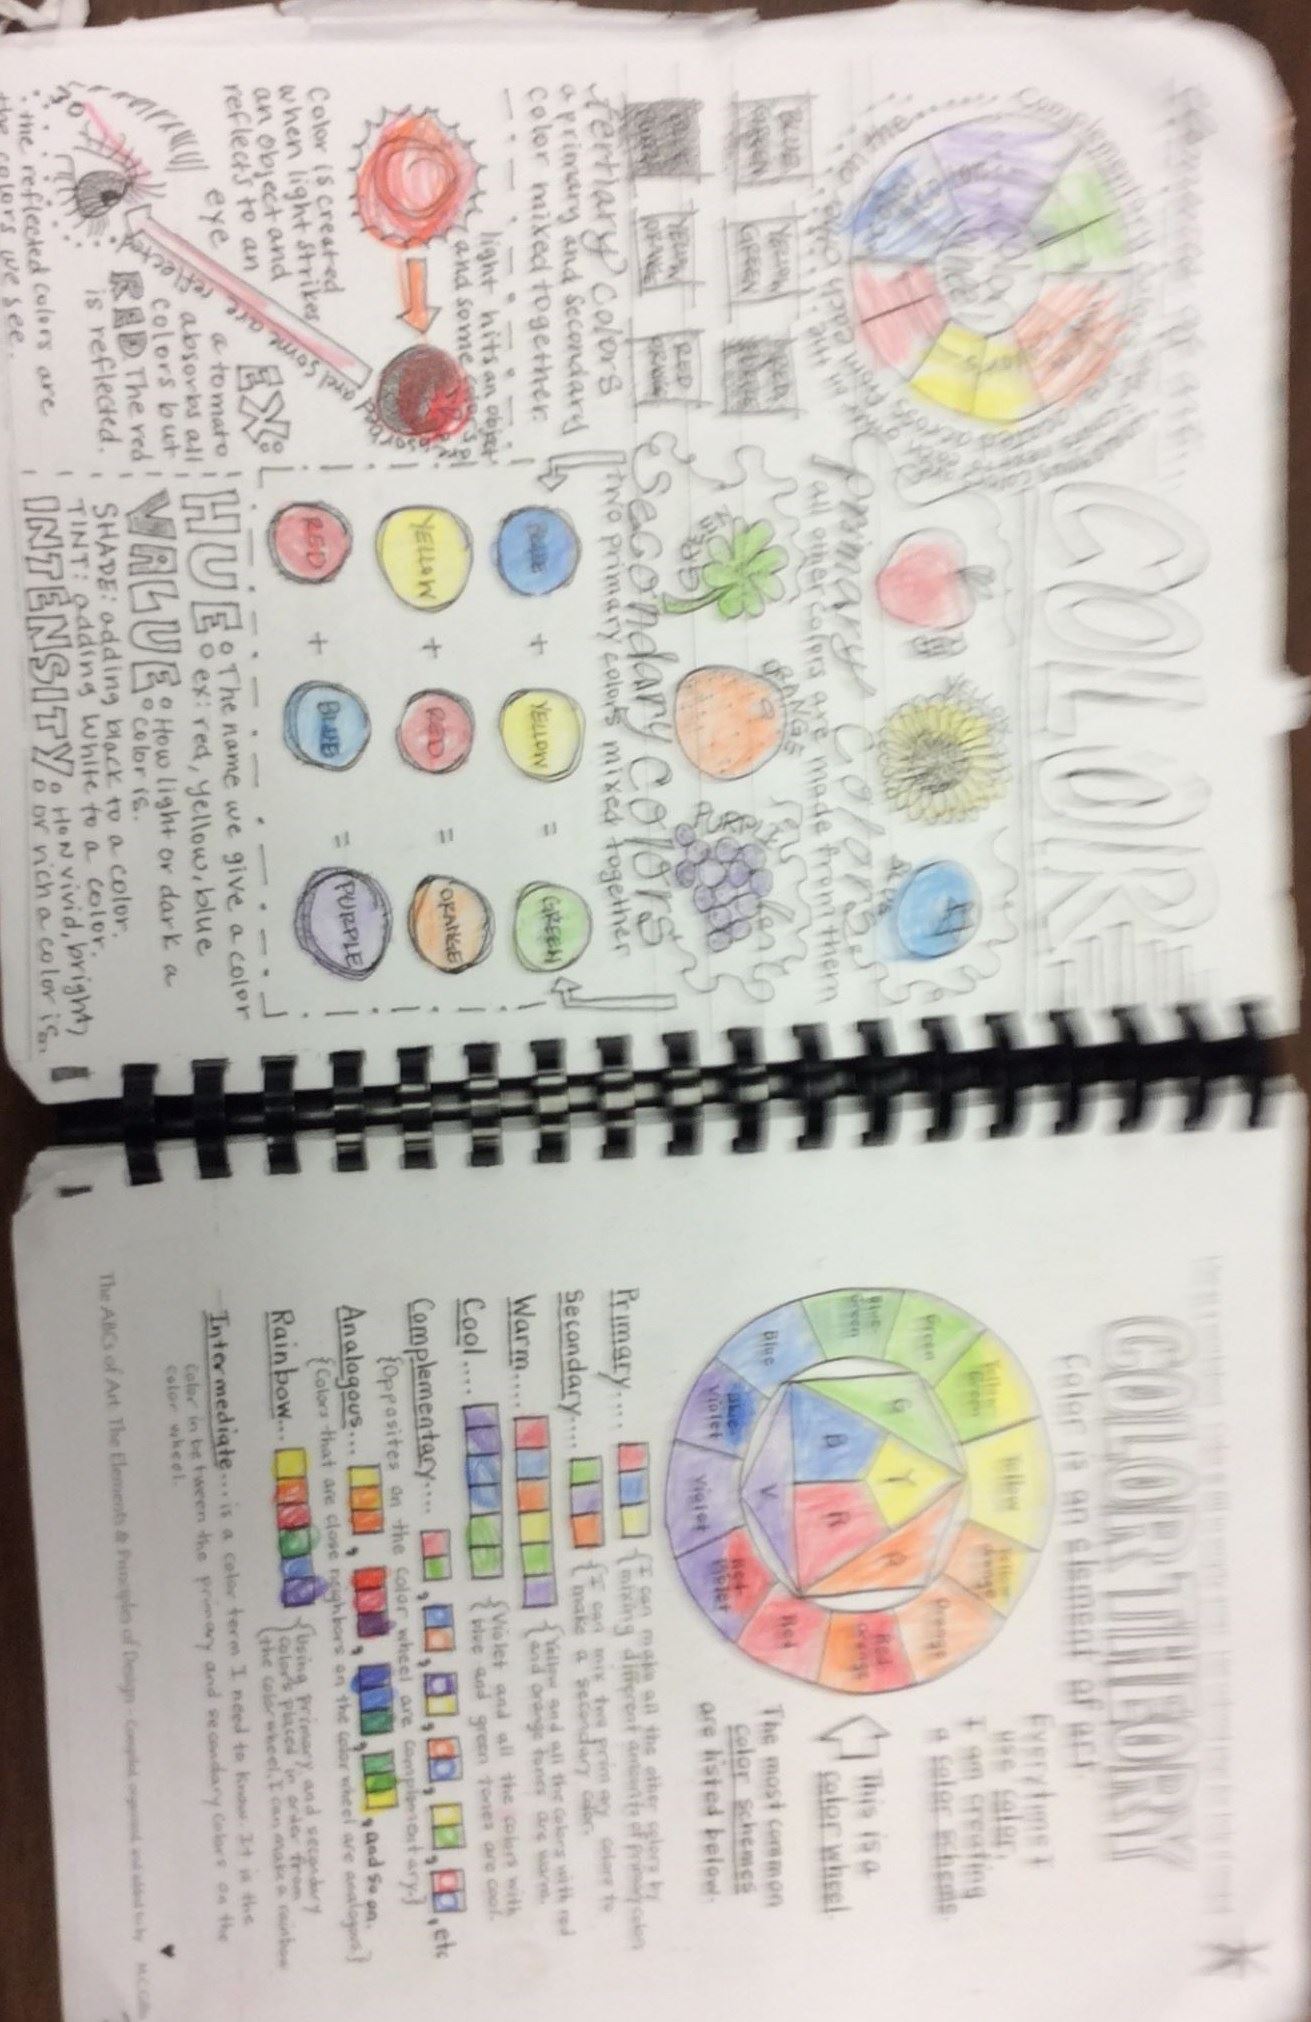 COLOR
Primary Colors
all other colors are made from them
Secondary Colors
two primary colors mixed together
ORANGE
BLUE + YELLOW = GREEN
YELLOW + RED = ORANGE
RED + BLUE = PURPLE
HUE: The name we give a color
ex: red, yellow, blue
VALUE: How light or dark a
color is.
SHADE: adding black to a color.
TINT: adding white to a color.
INTENSITY: How vivid, bright,
or rich a color is.
Complementary
BLUE GREEN
YELLOW GREEN
YELLOW ORANGE
RED ORANGE
Tertiary Colors
a primary and secondary
color mixed together.
light hits an object
and some
and some are reflected
Color is created
when light strikes
an object and
reflects to an
eye
EX:
a tomato
absorbs all
colors but
RED. The red
is reflected.
the reflected colors are
the colors we see.
COLOR THEORY
Color is an element of art
Everytime I
use color,
I am creating
a color scheme.
This is a
color wheel.
The most common
color schemes
are listed below.
Yellow
Yellow Orange
Orange
Red Orange
Red
Red Violet
Violet
Blue Violet
Blue
Blue Green
Green
Yellow Green
Y
O
R
V
B
G
Primary....
{I can make all the other colors by
mixing different amounts of primary colors
Secondary....
{I can mix two primary colors to
make a secondary color.
Warm....
{Yellow and all the colors with red
and orange tones are warm.
Cool....
{Violet and all the colors with
blue and green tones are cool.
Complementary.... , , , , , , etc
{Opposites on the color wheel are complementary.}
Analogous... , , , , and so on.
{Colors that are close neighbors on the color wheel are analogous}
Rainbow...
{Using primary and secondary
colors placed in order from
the color wheel, I can make a rainbow
Intermediate... is a color term I need to know. It is the
color in between the primary and secondary colors on the
color wheel.
The ABCs of Art The Elements & Principles of Design - Compiled, organized and added to by